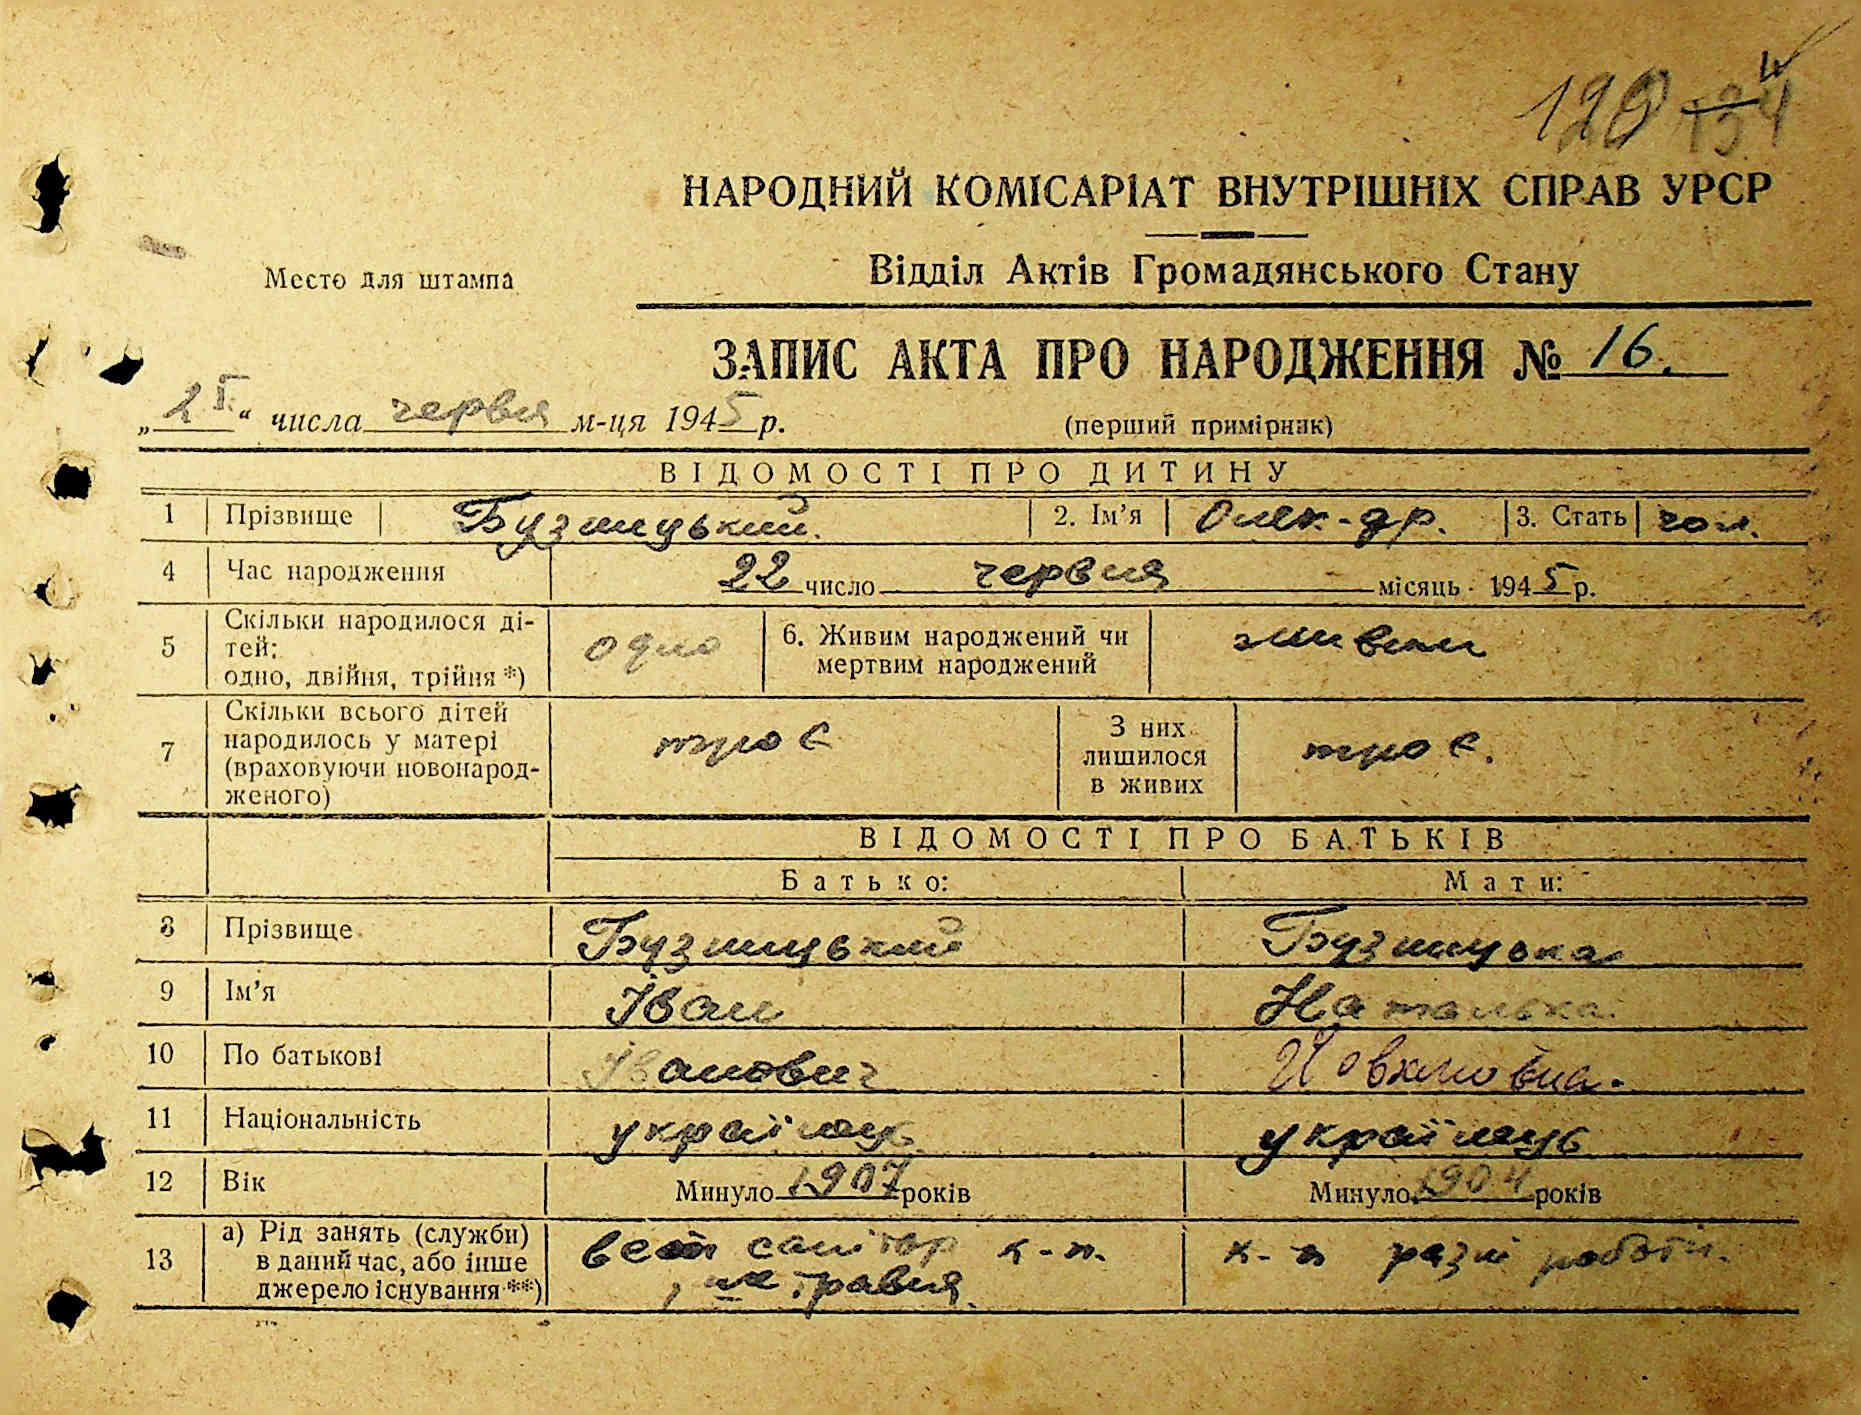 129 134
НАРОДНИЙ КОМІСАРІАТ ВНУТРІШНІХ СПРАВ УРСР
Место для штампа
Відділ Актів Громадянського Стану
ЗАПИС АКТА ПРО НАРОДЖЕННЯ № 16.
„ “ числа червня м-ця 1945 р.
(перший примірник)
ВІДОМОСТІ ПРО ДИТИНУ
1 Прізвище Бузницький. 2. Ім’я Олек-др. 3. Стать чол.
4 Час народження 22 число червня місяць 1945 р.
5 Скільки народилося ді-
тей:
одно, двійня, трійня *) одно 6. Живим народжений чи
мертвим народжений живим
7 Скільки всього дітей
народилось у матері
(враховуючи новонарод-
женого) троє З них
лишилося
в живих троє.
ВІДОМОСТІ ПРО БАТЬКІВ
Батько: Мати:
8 Прізвище Бузницький Бузницька
9 Ім’я Іван Наталька
10 По батькові Іванович
11 Національність українець українець
12 Вік Минуло 1907 років Минуло 1904 років
13 а) Рід занять (служби)
в даний час, або інше
джерело існування **) вет санітар к-п.
травня к-п разні роботи.